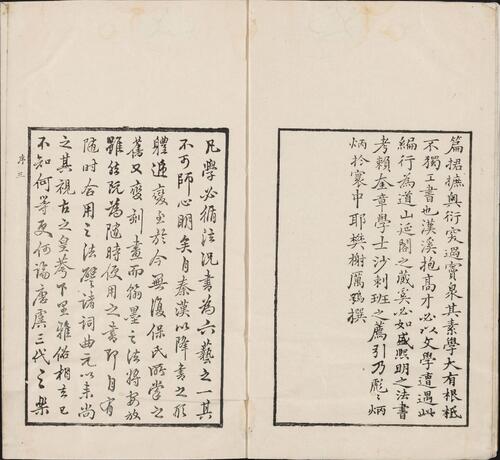 篇捃摭奧衍突過竇泉其素學大有根柢
不獨工書也漢溪抱高才必以文學遭遇此
編行為道山延閣之藏奚必如盛熙明之法書
考賴奎章學士沙剌班之薦引乃彪彪炳
炳於寰中耶樊榭厲鶚撰
凡學必循法況書為六藝之一其
不可師心明矣自秦漢以降書之形
體遞變至於今無復保氏所掌之
舊又變刻畫而翰墨之法將安放
雖然既為隨時便用之書即自有
隨時合用之法譬諸詞曲元以來尚
之其視古之皇荂下里雅俗相去已
不知何等更何論唐虞三代之樂
序三